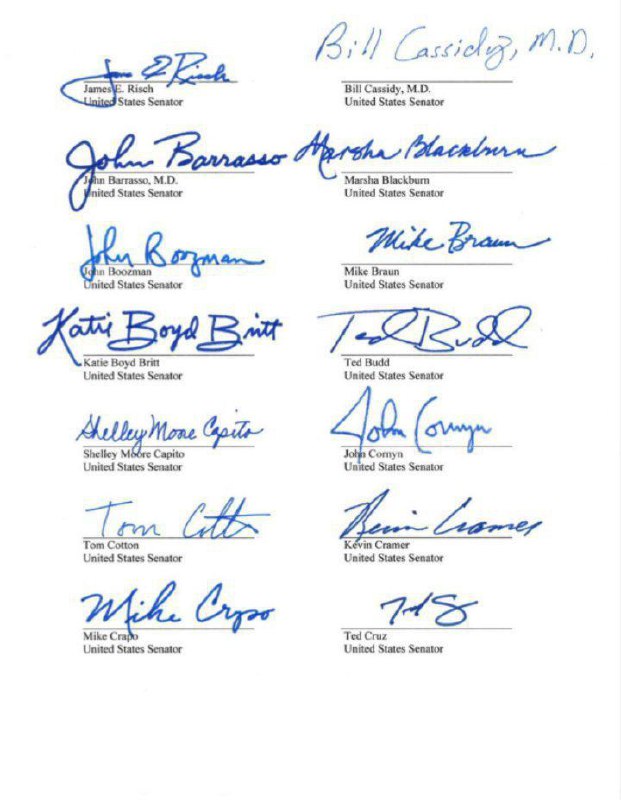 James E Risch
Bill Cassidy, M.D.
James E. Risch
Bill Cassidy, M.D.
United States Senator
United States Senator
John Barrasso
Marsha Blackburn
John Barrasso, M.D.
Marsha Blackburn
United States Senator
United States Senator
John Boozman
Mike Braun
John Boozman
Mike Braun
United States Senator
United States Senator
Katie Boyd Britt
Ted Budd
Katie Boyd Britt
Ted Budd
United States Senator
United States Senator
Shelley Moore Capito
John Cornyn
Shelley Moore Capito
John Cornyn
United States Senator
United States Senator
Tom Cotton
Kevin Cramer
Tom Cotton
Kevin Cramer
United States Senator
United States Senator
Mike Crapo
Ted Cruz
Mike Crapo
Ted Cruz
United States Senator
United States Senator